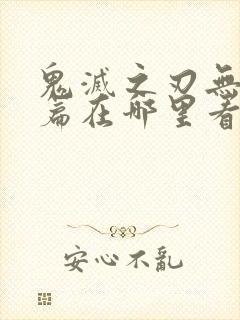 鬼滅之刃無
篇在哪里看
安心不亂